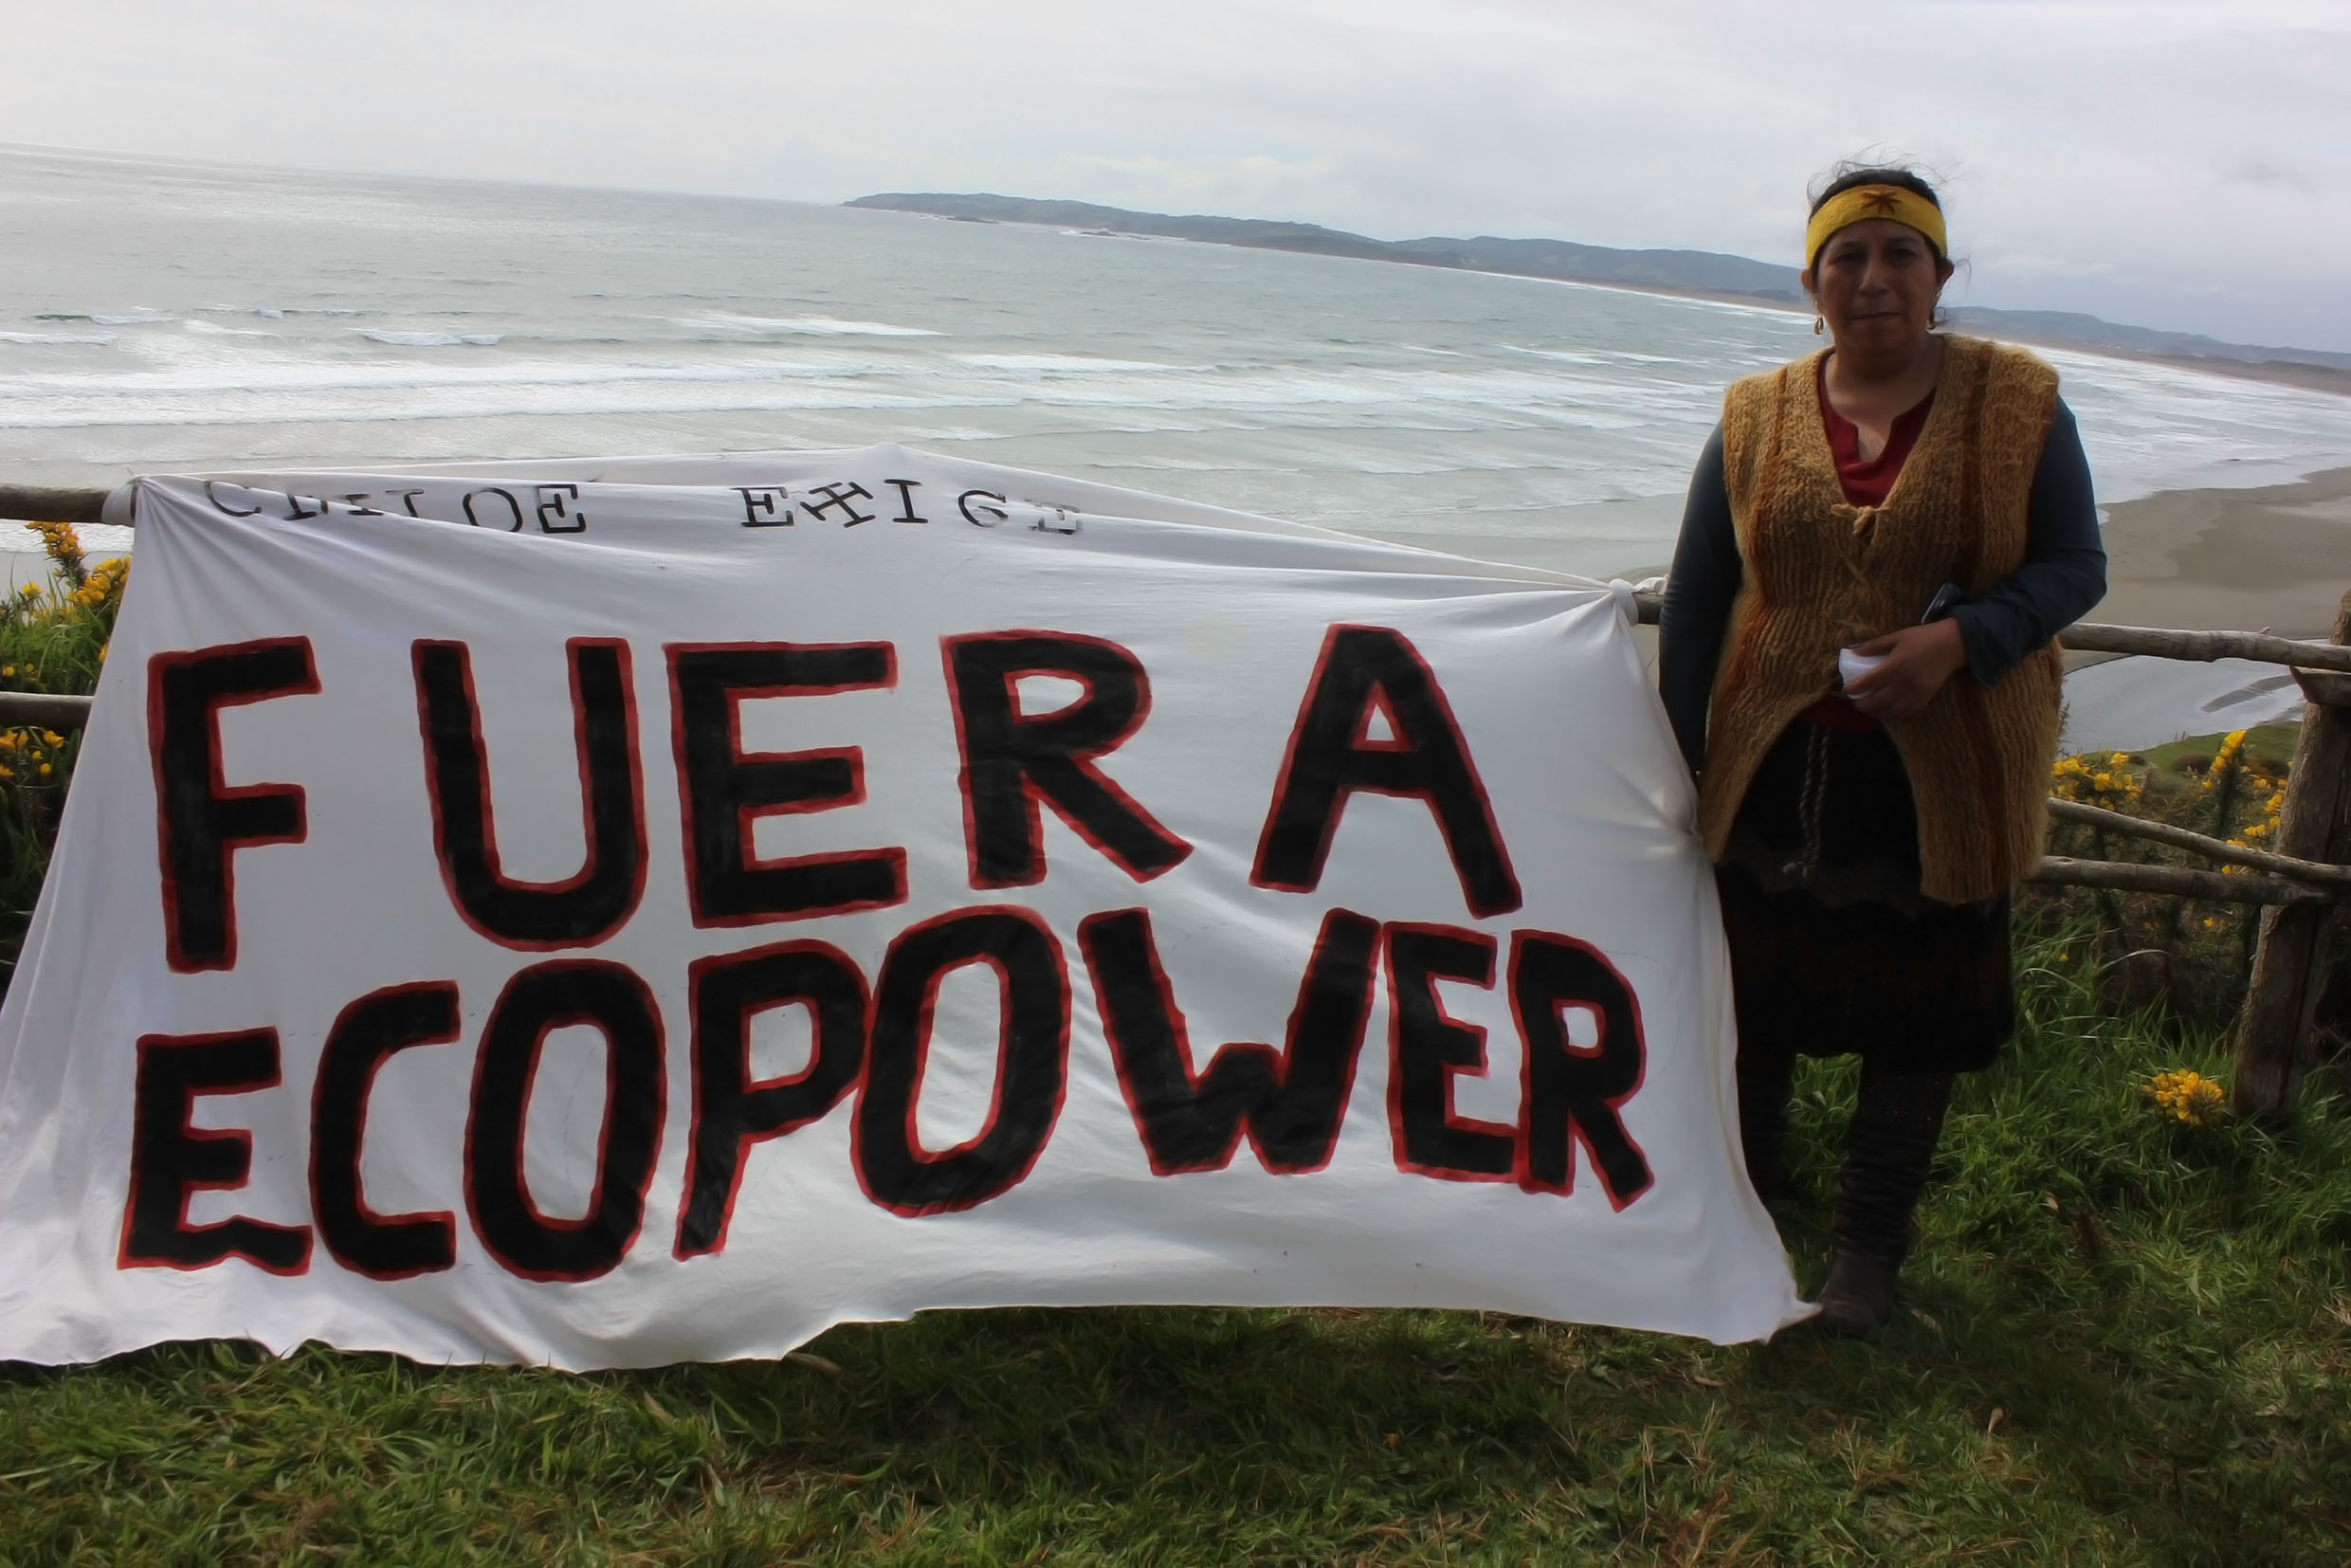 CHILOE EXIGE
FUERA
ECOPOWER